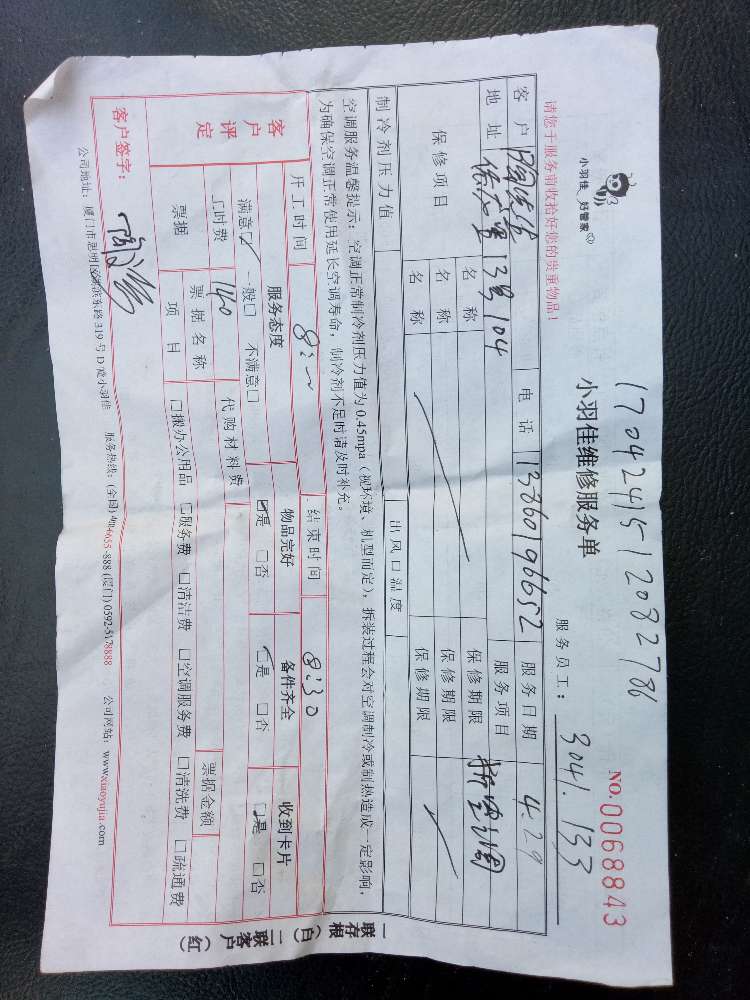 1704241512082786
小羽佳 好管家
小羽佳维修服务单
NO.0068843
请您于服务前收拾好您的贵重物品！
服务员工： 3041.133
客 户 电 话 13860196652 服务日期 4.29
地 址 13号104 服务项目 拆空调
保修项目 名 称 保修期限
名 称 保修期限
名 称 保修期限
制冷剂压力值 出风口温度
空调服务温馨提示：空调正常制冷剂压力值为 0.45mpa（视环境、机型而定），拆装过程会对空调制冷或制热造成一定影响，
为确保空调正常使用延长空调寿命，制冷剂不足时请及时补充。
开工时间 8:~ 结束时间 8:30
客户评定 服务态度 物品完好 备件齐全 收到卡片
满意☑ 一般□ 不满意□ ☑是 □否 ☑是 □否 □是 □否
工时费 140 代购材料费
票据 票据名称 票据金额
项 目 □搬办公用品 □服务费 □清洁费 □空调服务费 □清洗费 □疏通费
客户签字：
公司地址：厦门市思明区 东路 319 号 D 小羽佳 服务热线：(全国) 4006655-888 (厦门) 0592-5178888 公司网站：www.xiaoyujia.com
一联存根（白）二联客户（红）